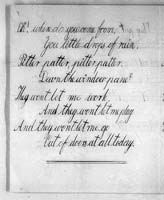 Oh! where do you come from,
You little drops of rain,
Pitter patter, pitter patter
Down the window pane?
They wont let me work,
And they wont let me play
And they wont let me go
Out of doors at all today.